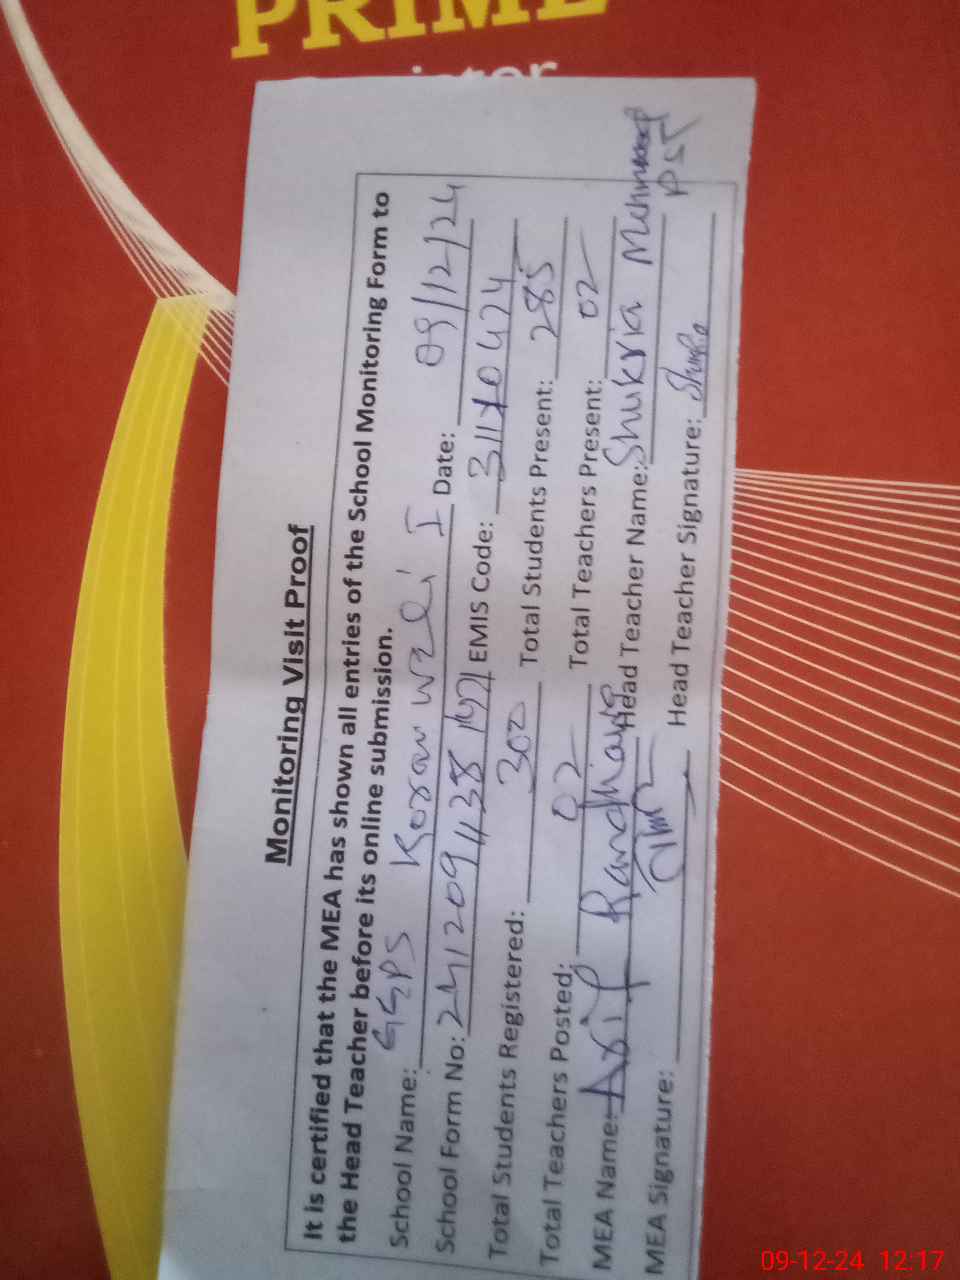 PRIME
Monitoring Visit Proof
It is certified that the MEA has shown all entries of the School Monitoring Form to
the Head Teacher before its online submission.
School Name: GGPS I Date: 09/12/24
School Form No: EMIS Code:
Total Students Registered: 302 Total Students Present: 285
Total Teachers Posted: 02 Total Teachers Present: 02
MEA Name: Asif Randhawa Head Teacher Name: Shukria Mehmood
PST
MEA Signature: Head Teacher Signature:
09-12-24 12:17